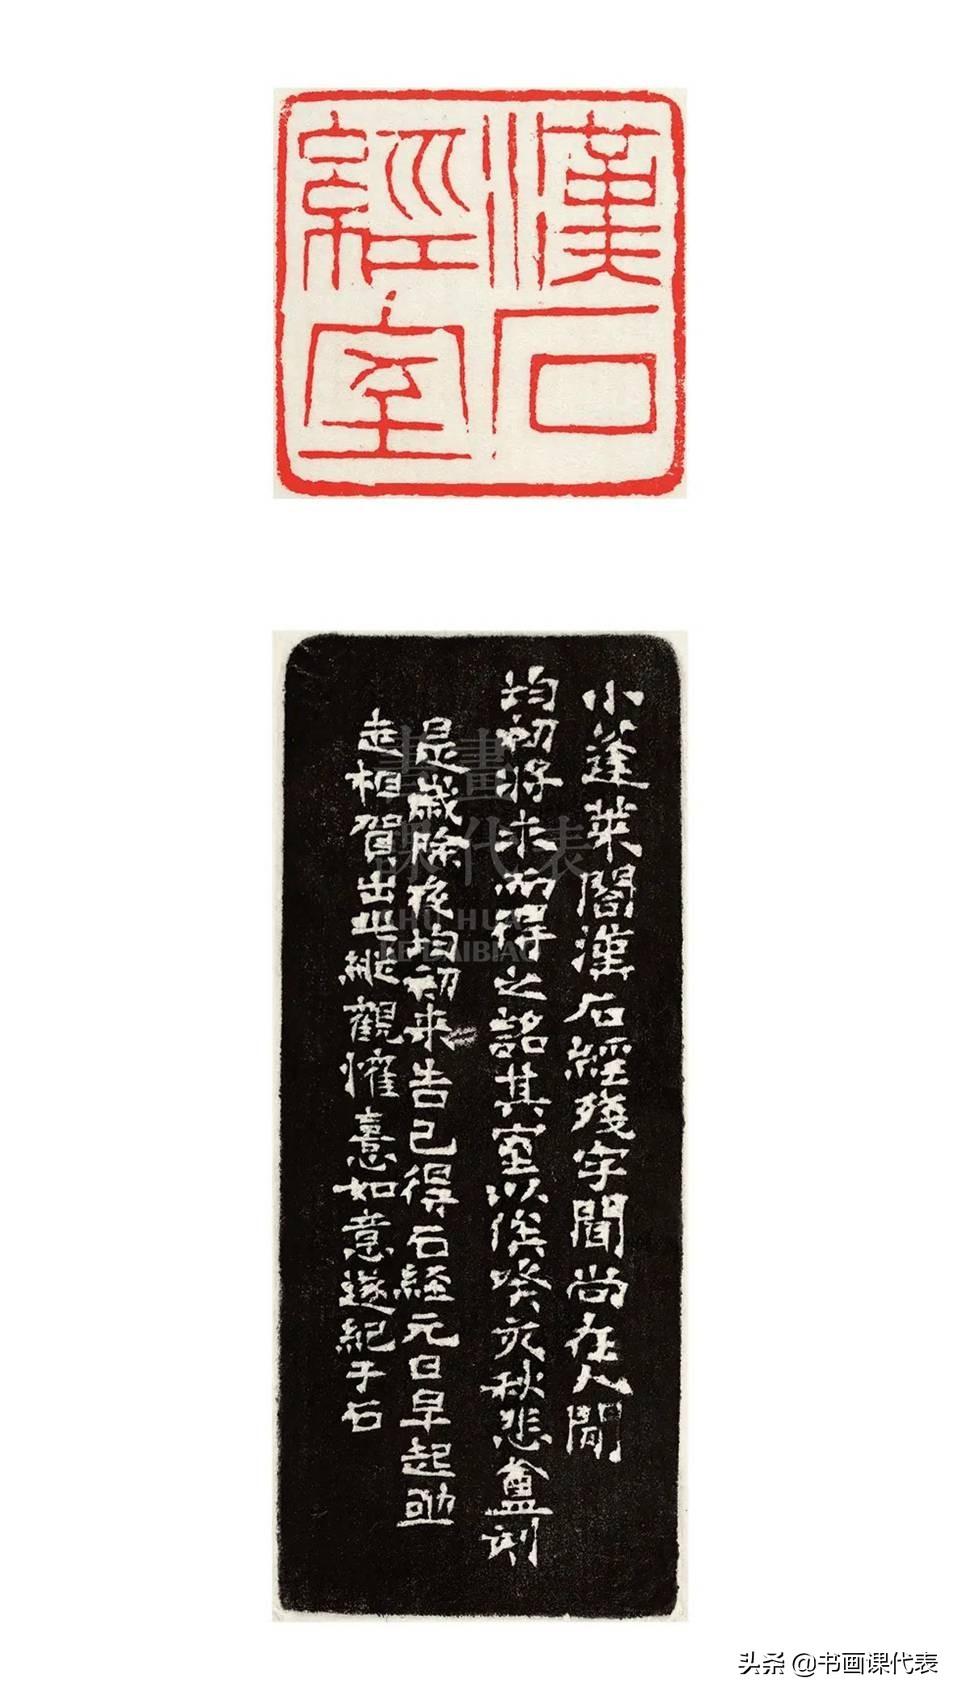 漢石
經室
小蓬萊閣漢石經殘字聞尚在人間
均初將求而得之銘其室以俟癸亥秋悲盦刻
是歲除夜均初來告已得石經元日早起
走相賀出此縱觀懽憙如意遂紀于石
書畫
課代表
SHU HUA
KE DAIBIAO
头条 @书画课代表